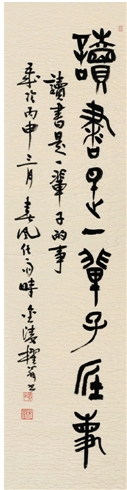 讀書是一輩子底事
讀書是一輩子的事
歲於丙申三月春風化雨時金陵